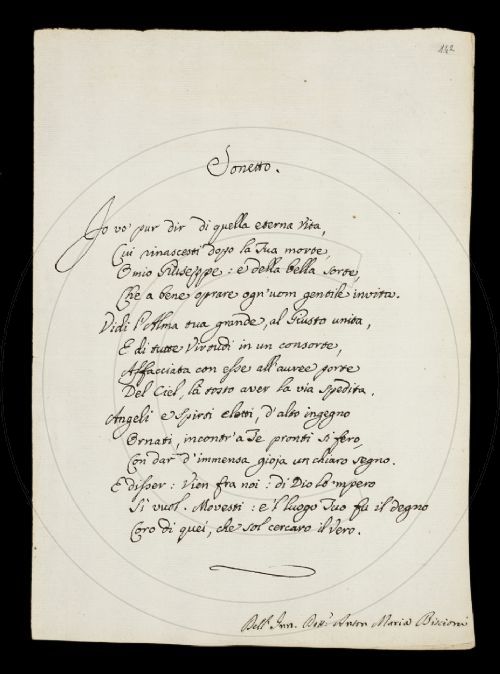 142
Sonetto.
Io vo' pur dir di quella eterna Vita,
Cui rinascesti dopo la Tua morte,
O mio Giuseppe: e della bella sorte,
Che a bene oprare ogn'uom gentile invita.
Vidi l'Alma tua grande, al Giusto unita,
E di tutte Virtudi in un consorte,
Affacciata con esse all'auree porte
Del Ciel, là tosto aver la via spedita.
Angeli e Spirti eletti, d'alto ingegno
Ornati, incontr'a Te pronti si fero,
Con dar d'immensa gioja un chiaro segno.
E disser: Vien fra noi: di Dio lo'mpero
Sì vuol. Movesti: e'l luogo Tuo fu il degno
Coro di quei, che sol cercaro il Vero.
Dell' Dott. Anton Maria Biscioni